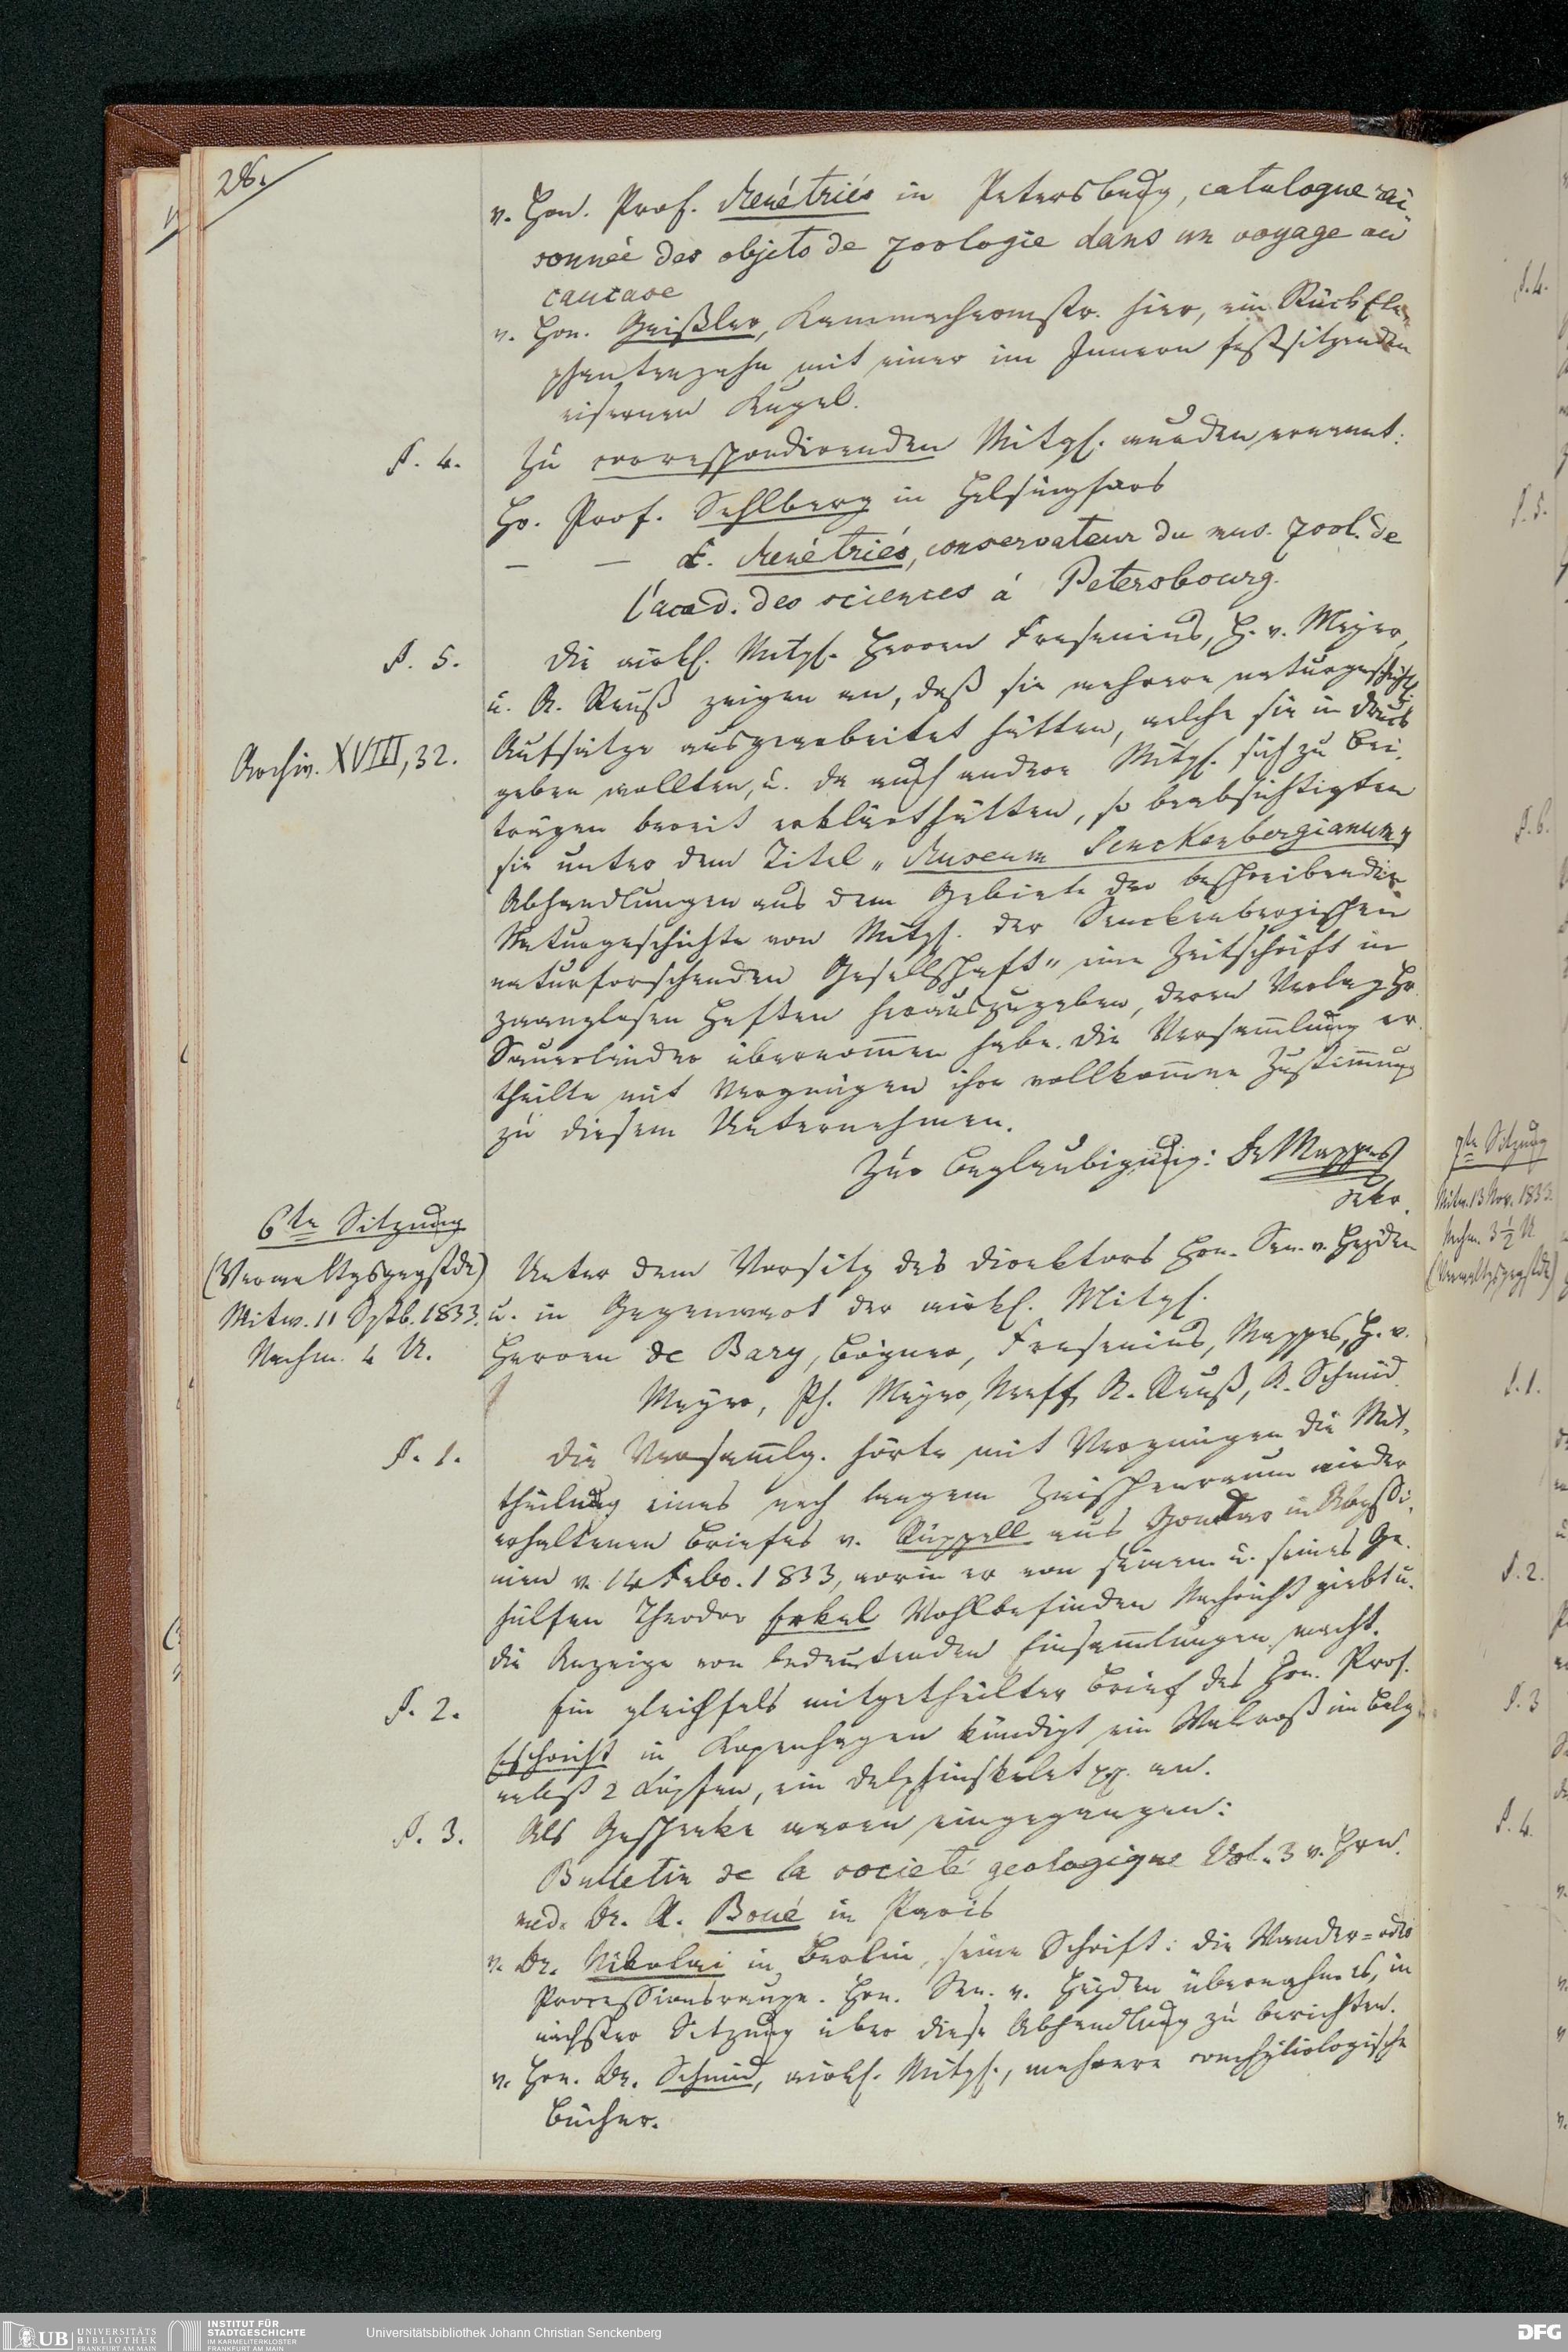 28.
v. Hrn. Prof. Menétriés in Petersburg, catalogue rai-
sonnée des objets de zoologie dans un voyage au
caucase
v. Hrn. Geißler, Kammachermstr. hier, ein Stück Ele-
phantenzahn mit einer im Innern festsitzenden
eisernen Kugel.
§. 4. Zu correspondirenden Mitgl. wurden ernannt:
Hr. Prof. Sahlberg in Helsingfors
— — E. Menétriés, conservateur du mus. zool. de
l'acad. des sciences á Petersbourg.
§. 5. Die wirkl. Mitgl. Herren Fresenius, H. v. Meyer,
u. A. Reuß zeigen an, daß sie mehrere naturgeschichtl.
Archiv. XVIII, 32. Aufsätze ausgearbeitet hätten, welche sie in Druck
geben wollten, u. da auch andere Mitgl. sich zu Bei-
trägen bereit erklärt hätten, so beabsichtigten
sie unter dem Titel „Museum Senckenbergianum,
Abhandlungen aus dem Gebiete der beschreibenden
Naturgeschichte von Mitgl. der Senckenbergischen
naturforschenden Gesellschaft" eine Zeitschrift in
zwanglosen Heften herauszugeben, deren Verlag Hr.
Sauerländer übernom̄en habe. Die Versam̄lung er-
theilte mit Vergnügen ihre vollkom̄ene Zustim̄ung
zu diesem Unternehmen.
Zur Beglaubigung: Dr Mappes
Sekr.
6te Sitzung
(Verwaltgsgegstde)
Mitw. 11 Sptb. 1833.
Nachm. 4 U.
Unter dem Vorsitz des Direktors Hrn. Sen. v. Heyden
u. in Gegenwart der wirkl. Mitgl.
Herren de Bary, Bögner, Fresenius, Mappes, H. v.
Meyer, Ph. Meyer, Neeff, A. Reuß, A. Schmid
§. 1. Die Versam̄lg. hörte mit Vergnügen die Mit-
theilung eines nach langem Zwischenraum wieder
erhaltenen Briefes v. Rüppell aus Gondar in Abyssi-
nien v. 14 Febr. 1833, worin er von seinem u. seines Ge-
hülfen Theodor Erkel Wohlbefinden Nachricht giebt u.
die Anzeige von bedeutenden Einsam̄lungen macht.
§. 2. Ein gleichfals mitgetheilter Brief des Hrn. Prof.
Eschricht in Kopenhagen kündigt ein Walroß im Balg
nebst 2 Köpfen, ein Delphinskelet pp. an.
§. 3. Als Geschenke waren eingegangen:
Bulletin de la societé geologique Vol. 3 v. Hrn.
med. Dr. A. Boué in Paris
v. Dr. Nikolai in Berlin, seine Schrift: die Wander= oder
Processionsraupe. Hr. Sen. v. Heyden übernahm es, in
nächster Sitzung über diese Abhandlung zu berichten.
v. Hrn. Dr. Schmid, wirkl. Mitgl., mehrere conchyliologische
Bücher.
§. 4.
§. 5.
§. 6.
7te Sitzung
Mitw. 13 Nov. 1833.
Nachm. 3½ U
(Verwaltgsgegstde)
§. 1.
§. 2.
§. 3
§. 4.
UB UNIVERSITÄTS
BIBLIOTHEK
FRANKFURT AM MAIN
INSTITUT FÜR
STADTGESCHICHTE
IM KARMELITERKLOSTER
FRANKFURT AM MAIN
Universitätsbibliothek Johann Christian Senckenberg
DFG